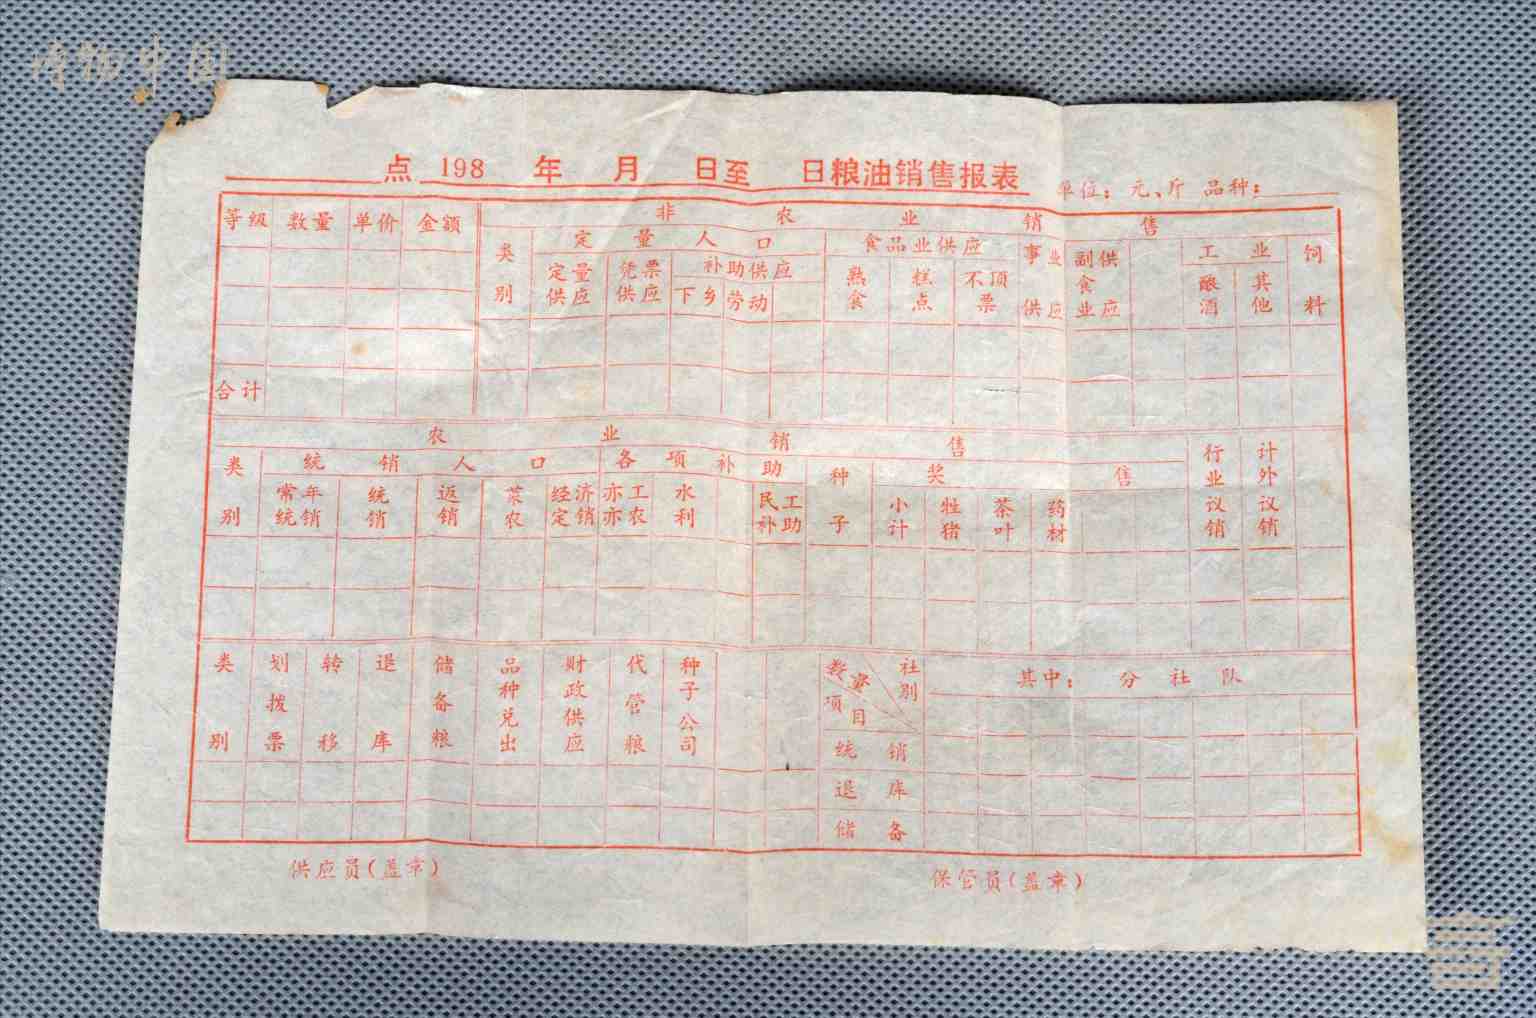 博物中国
点 198 年 月 日至 日粮油销售报表 单位：元、斤 品种：
等级 数量 单价 金额
合计
非农业销售
类别 定量人口 食品业供应 事业供应 副食业供应 工业 饲料
定量供应 凭票供应 补助供应 熟食 糕点 不顶票 酿酒 其他
下乡 劳动
农业销售 行业议销 计外议销
类别 统销人口 各项补助 种子 奖售
常年统销 统销 返销 菜农 经济定销 亦工亦农 水利 民工补助 小计 牲猪 茶叶 药材
类别 划拨票 转移 退库 储备粮 品种兑出 财政供应 代管粮 种子公司 数量 项目 社别 其中：分社队
统销
退库
储备
供应员(盖章) 保管员(盖章)